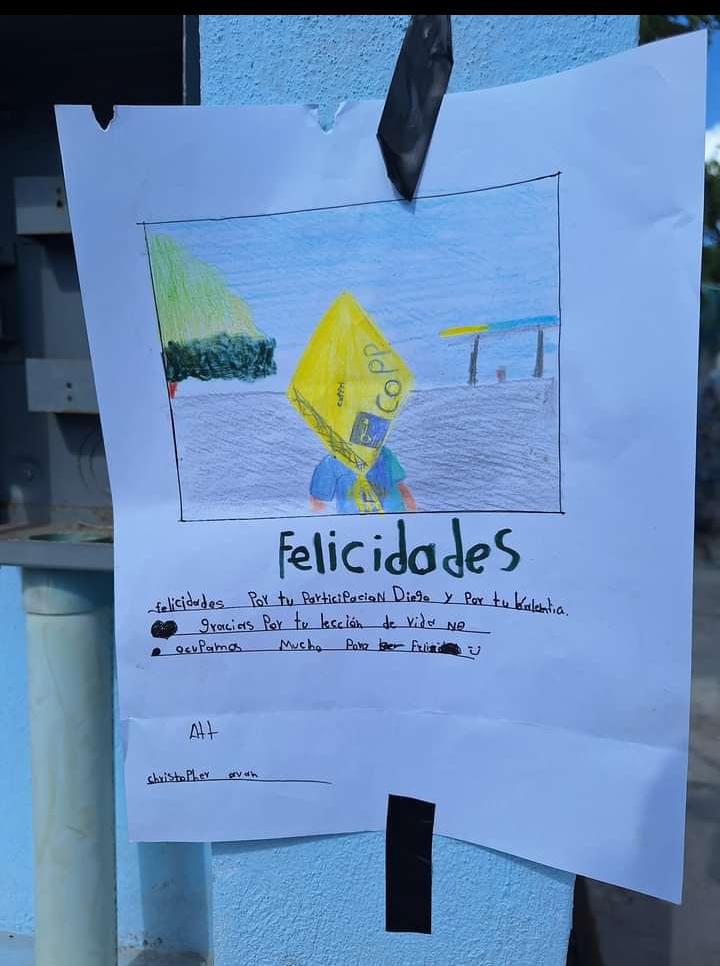 COPP
Felicidades
felicidades Por tu ParticiPacioN Diego y Por tu Valentia.
gracias Por tu lección de vida No
ocuPamos Mucho Para
Att
christoPher avan